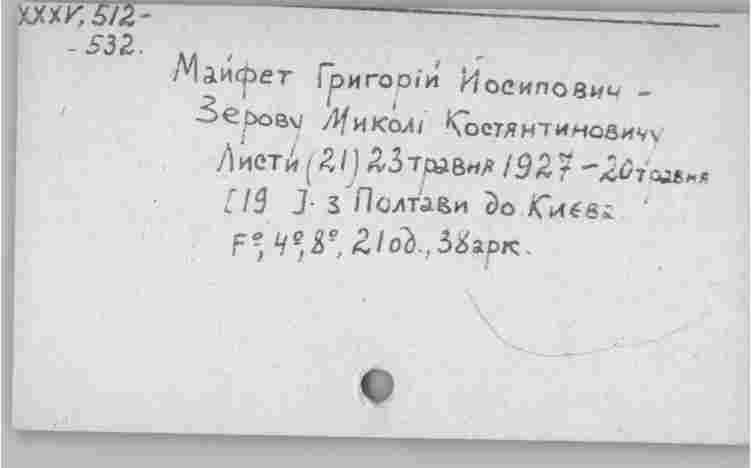 XXXV, 512-
- 532.
Майфет Григорій Йосипович -
Зерову Миколі Костянтиновичу
Листи (21) 23 травня 1927 - 20 травня
[19 ]. з Полтави до Києва
F°, 4°, 8°, 21 од., 38 арк.